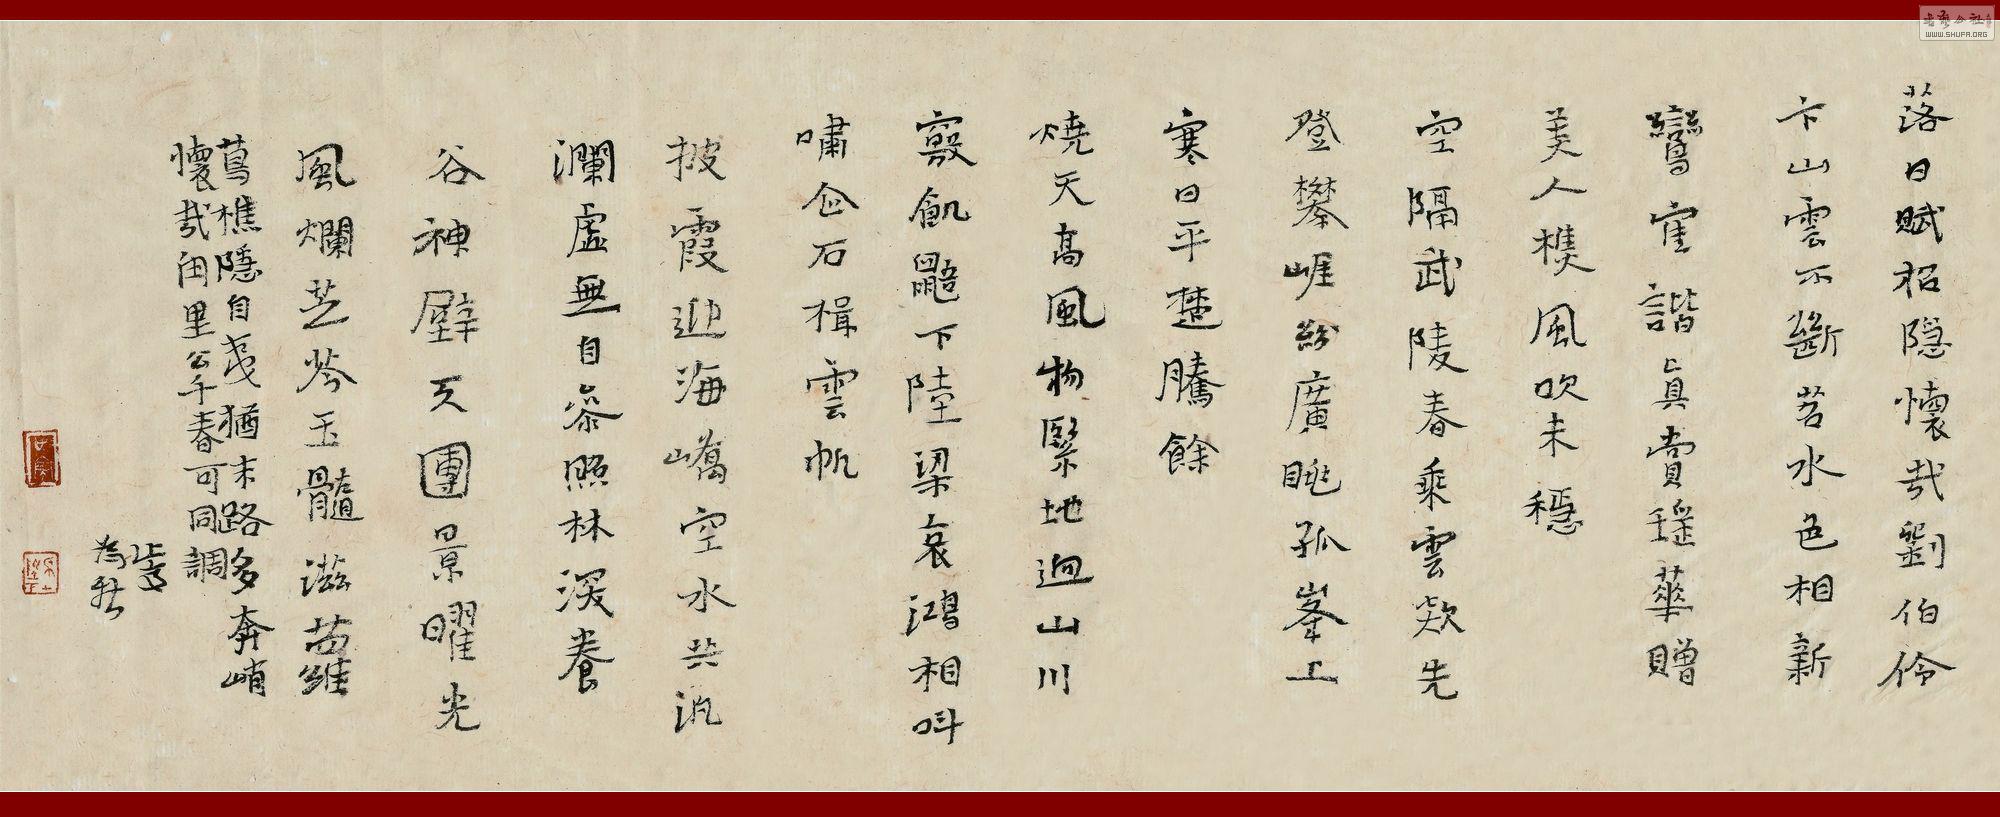 落日賦招隱懷哉劉伯伶
卞山雲不斷苕水色相新
鸞隺諧真賞瑤華贈
美人樵風吹未穩
空隔武陵春乘雲欻先
登攀崕紛廣眺孤峯上
寒日平楚騰餘
燒天高風物緊地迥山川
敻飢鼯下陸梁哀鴻相叫
嘯企石楫雲帆
披霞迎海嶠空水共汎
瀾虛無自忝照林深養
谷神壁天團景曜光
風爛芝芩玉髓滋苗維
蔦樵隱自戔猶末路多奔峭
懷哉閭里公千春可同調
WWW.SHUFA.ORG